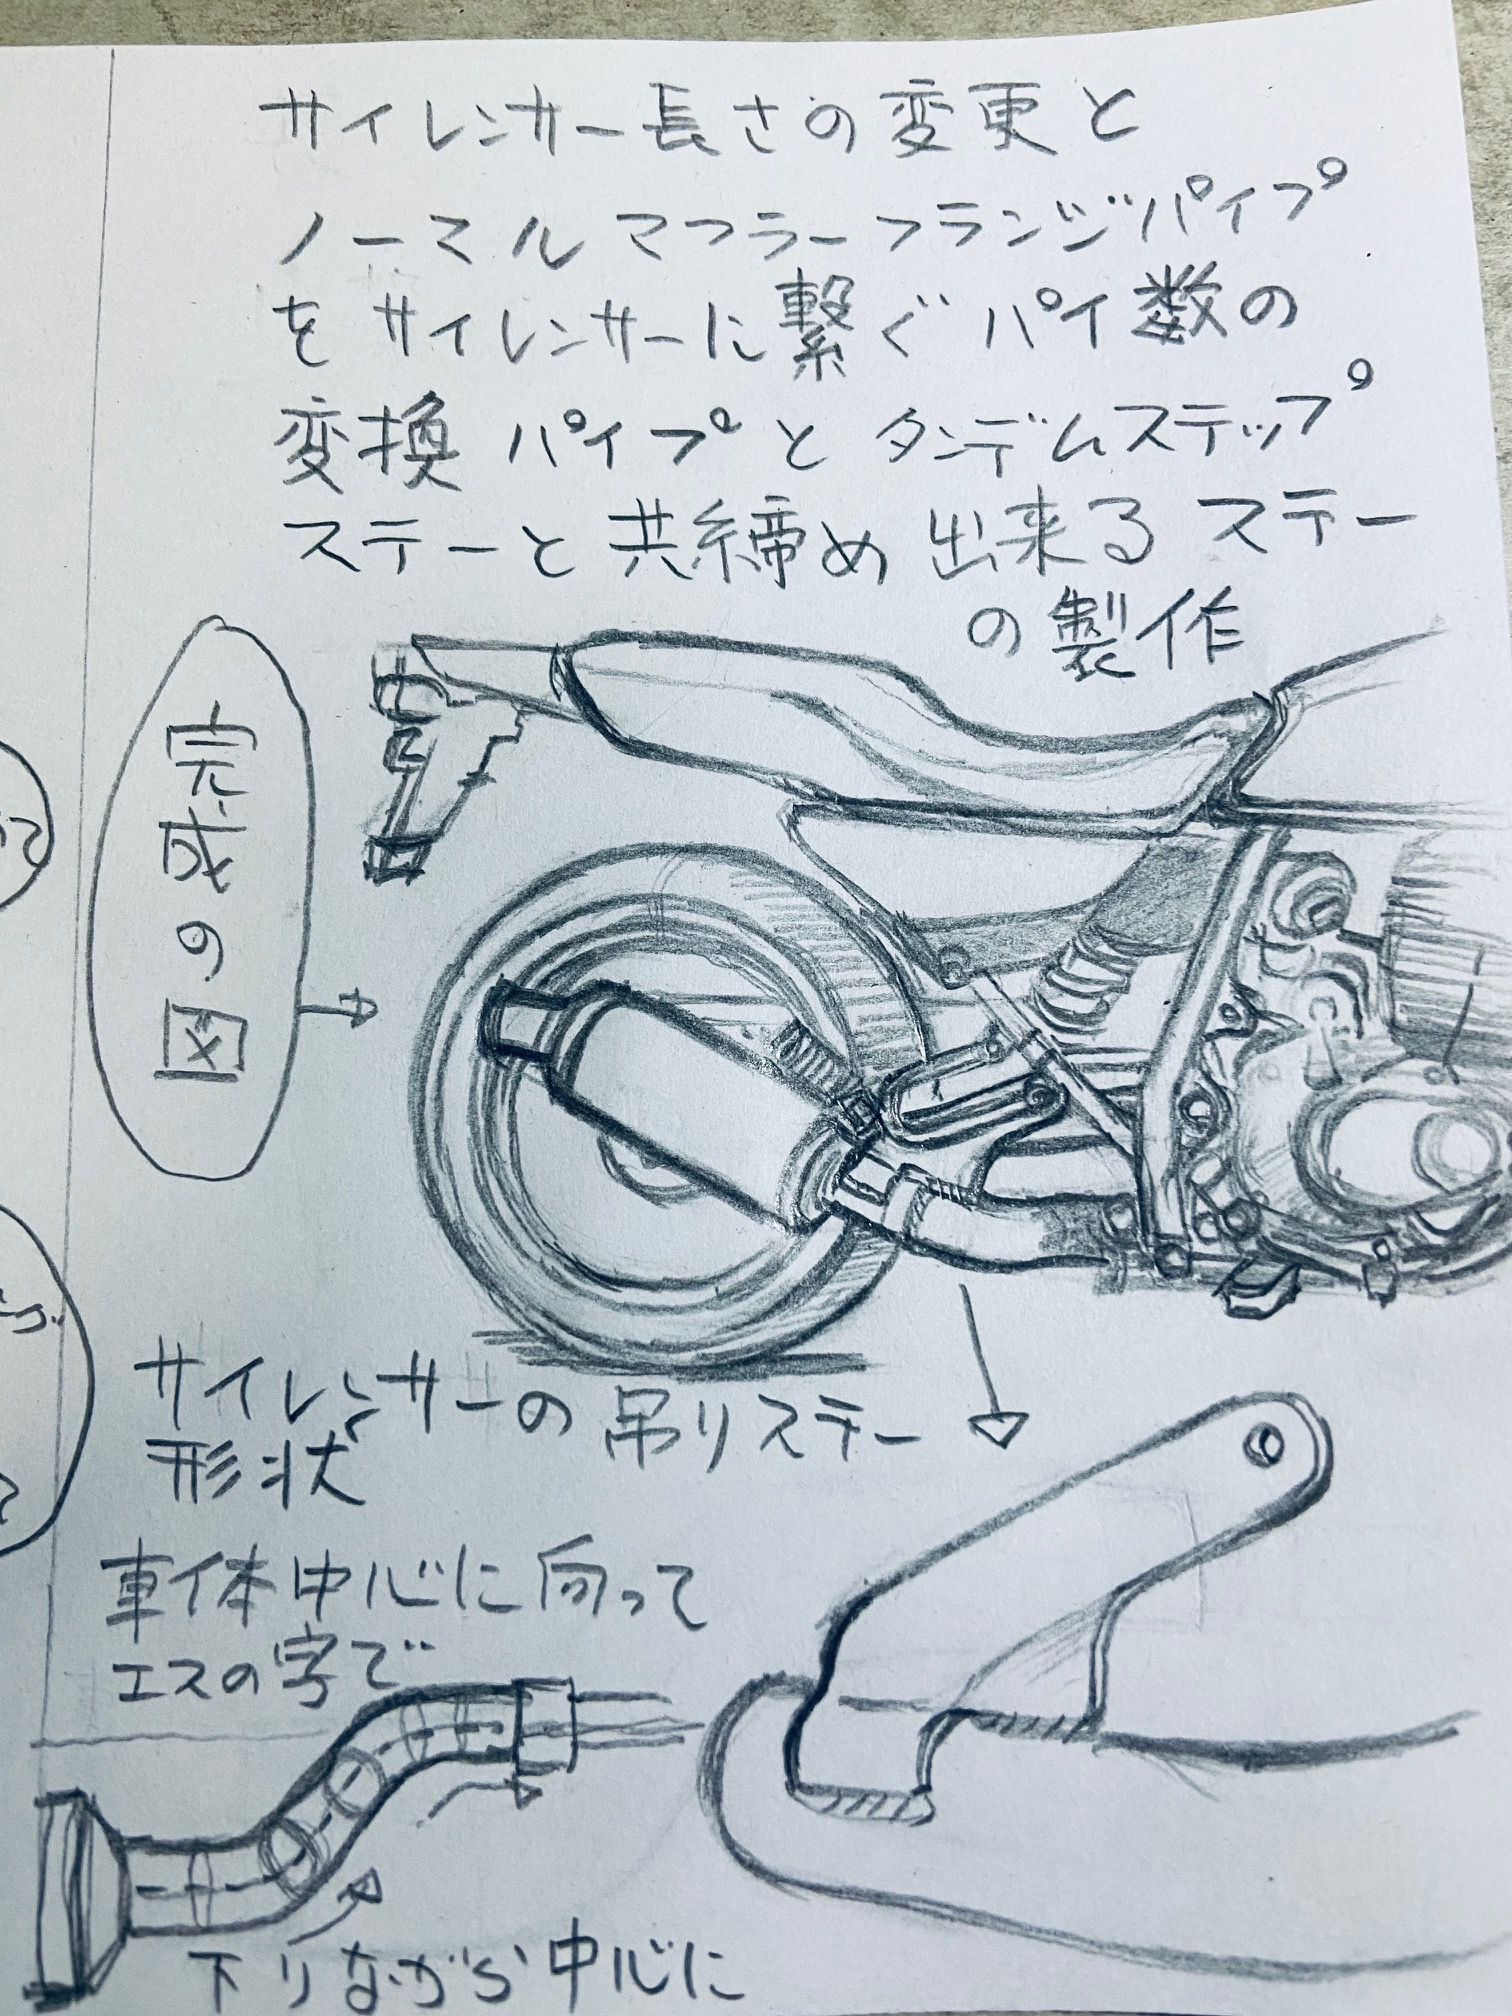 サイレンサー長さの変更と
ノーマルマフラーフランジパイプ
をサイレンサーに繋ぐパイ数の
変換パイプとタンデムステップ
ステーと共締め出来るステー
の製作
完成の図
サイレンサーの吊りステー
形状
車体中心に向って
エスの字で
下りながら中心に